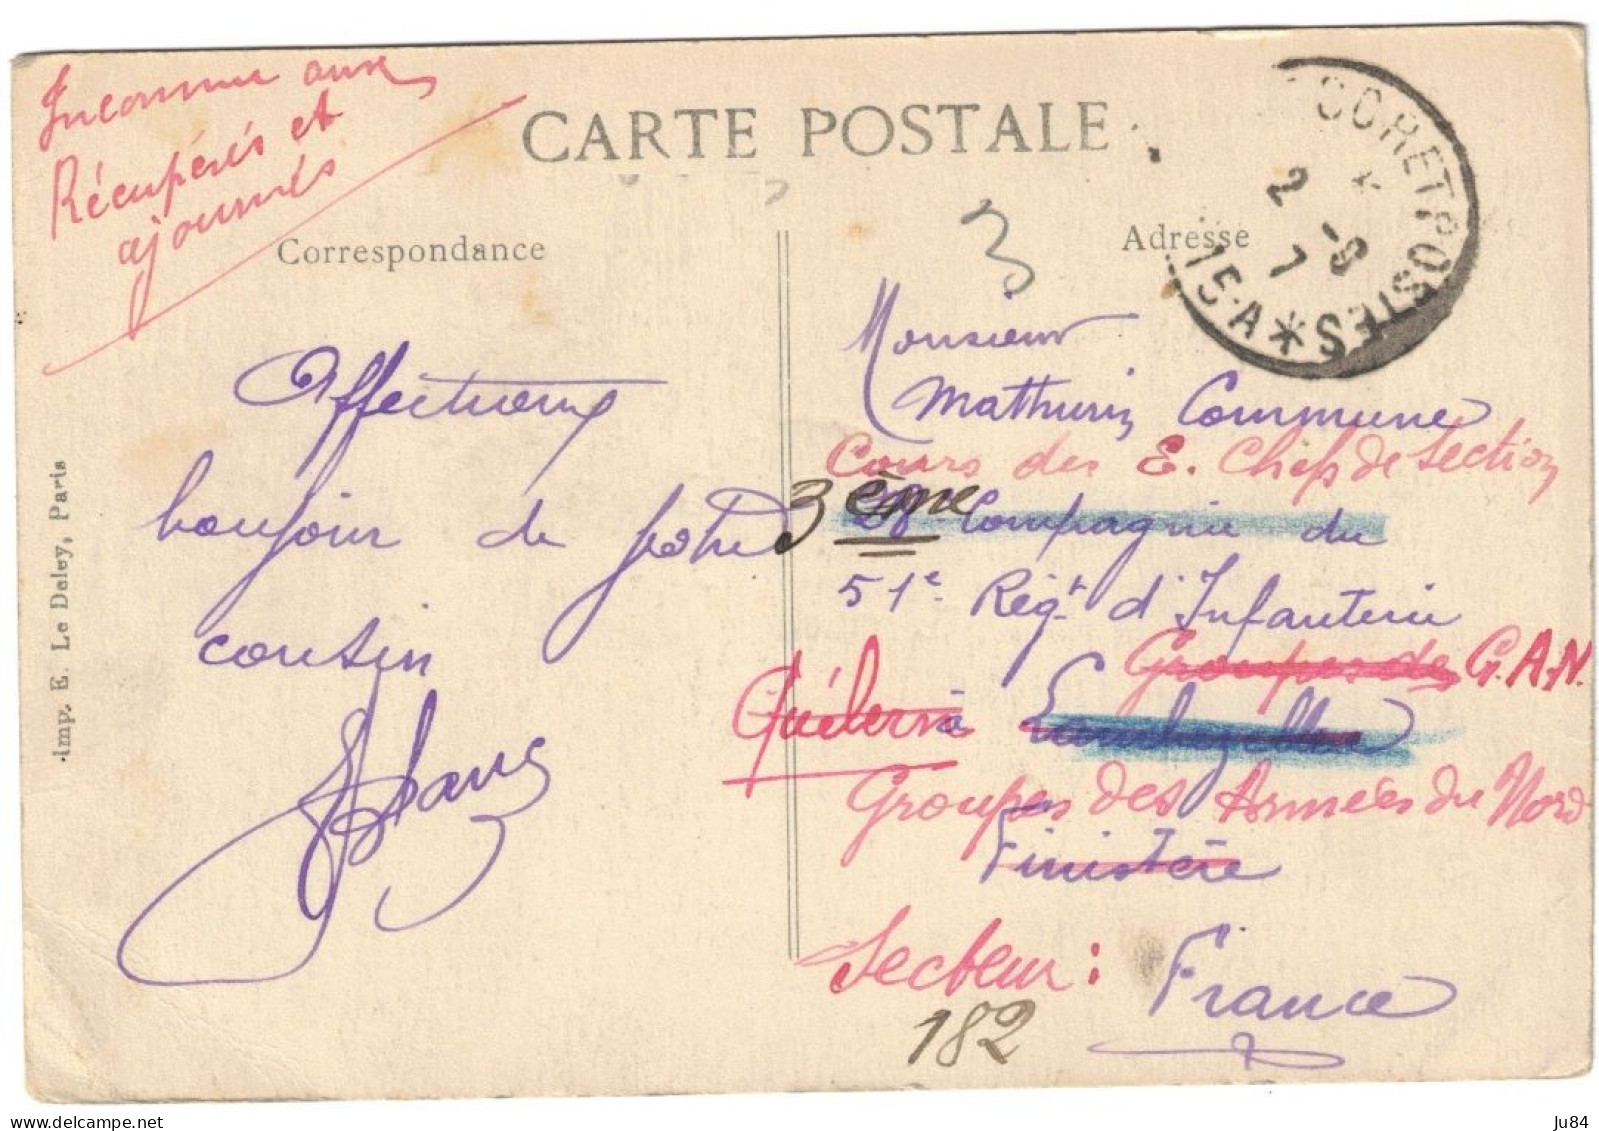 Inconnu aux
Récupérés et
ajournés
CARTE POSTALE
Correspondance
Adresse
3
TRESOR ET POSTES
2 - 9
1
15.A *
Affectueux
bonjour de votre
cousin
Monsieur
Mathurin Commune
Cours des E. Chefs de Section
3ème
28e Compagnie du
51e Regt d'Infanterie
Groupes des G.A.N.
Quélern à
Groupes des Armées du Nord
Finistère
Secteur :
182
France
Imp. E. Le Deley, Paris
delcampe.net
Ju84